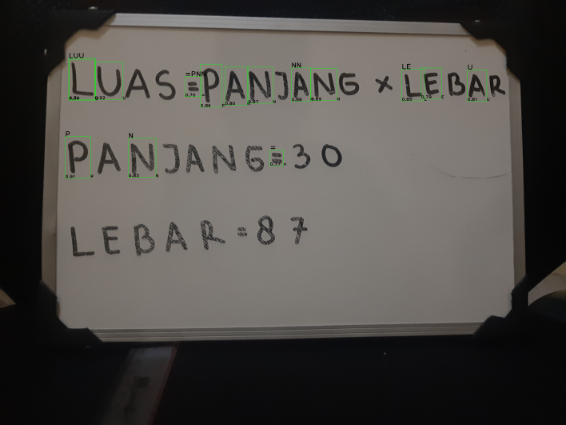 LUAS = PANJANG × LEBAR
PANJANG = 30
LEBAR = 87